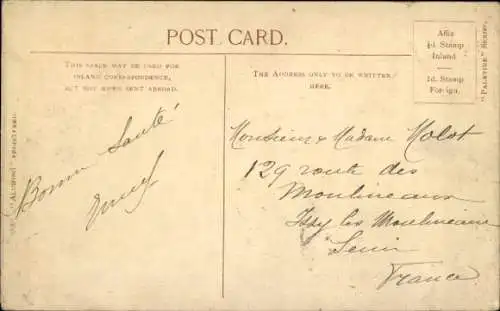 POST CARD.
THIS SPACE MAY BE USED FOR
INLAND CORRESPONDENCE,
BUT NOT WHEN SENT ABROAD.
THE ADDRESS ONLY TO BE WRITTEN
HERE.
Affix
½d. Stamp
Inland
1d. Stamp
Foreign.
"PALETINE" SERIES.
"ALPHONO" REGISTERED.
Bonne Santé
Monsieur & Madame Molot
129 route des
Moulineaux
Issy les Moulineaux
Seine
France